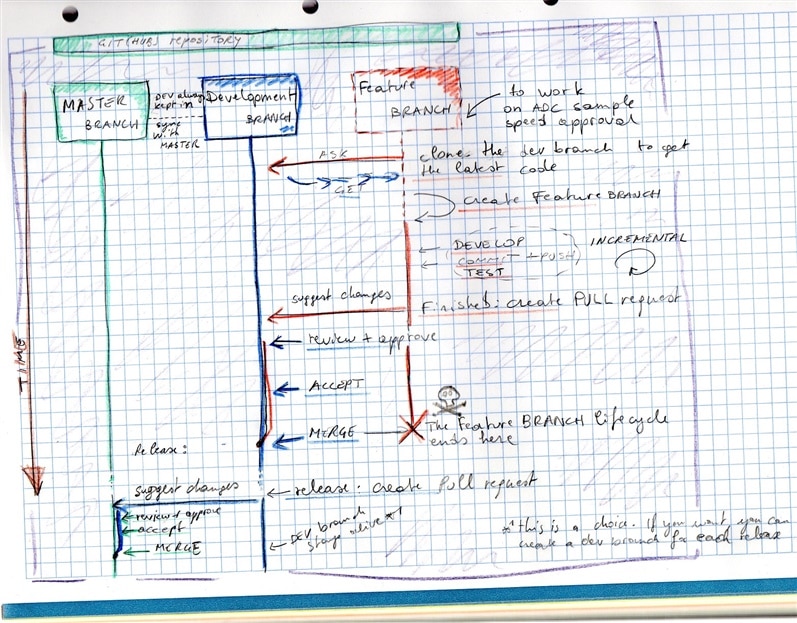 GIT(HUB) repository
MASTER
BRANCH
DEV always
kept in
sync
with
MASTER
Development
BRANCH
Feature
BRANCH
to work
on ADC sample
speed approval
ASK
GET
clone the dev branch to get
the latest code
create Feature BRANCH
DEVELOP
COMMIT + PUSH
TEST
INCREMENTAL
suggest changes
Finished: create PULL request
review + approve
ACCEPT
MERGE
The Feature BRANCH lifecycle
ends here
TIME
Release:
suggest changes
release: create Pull request
review + approve
accept
MERGE
DEV branch
stays alive *1
*1 this is a choice. If you want you can
create a dev branch for each release